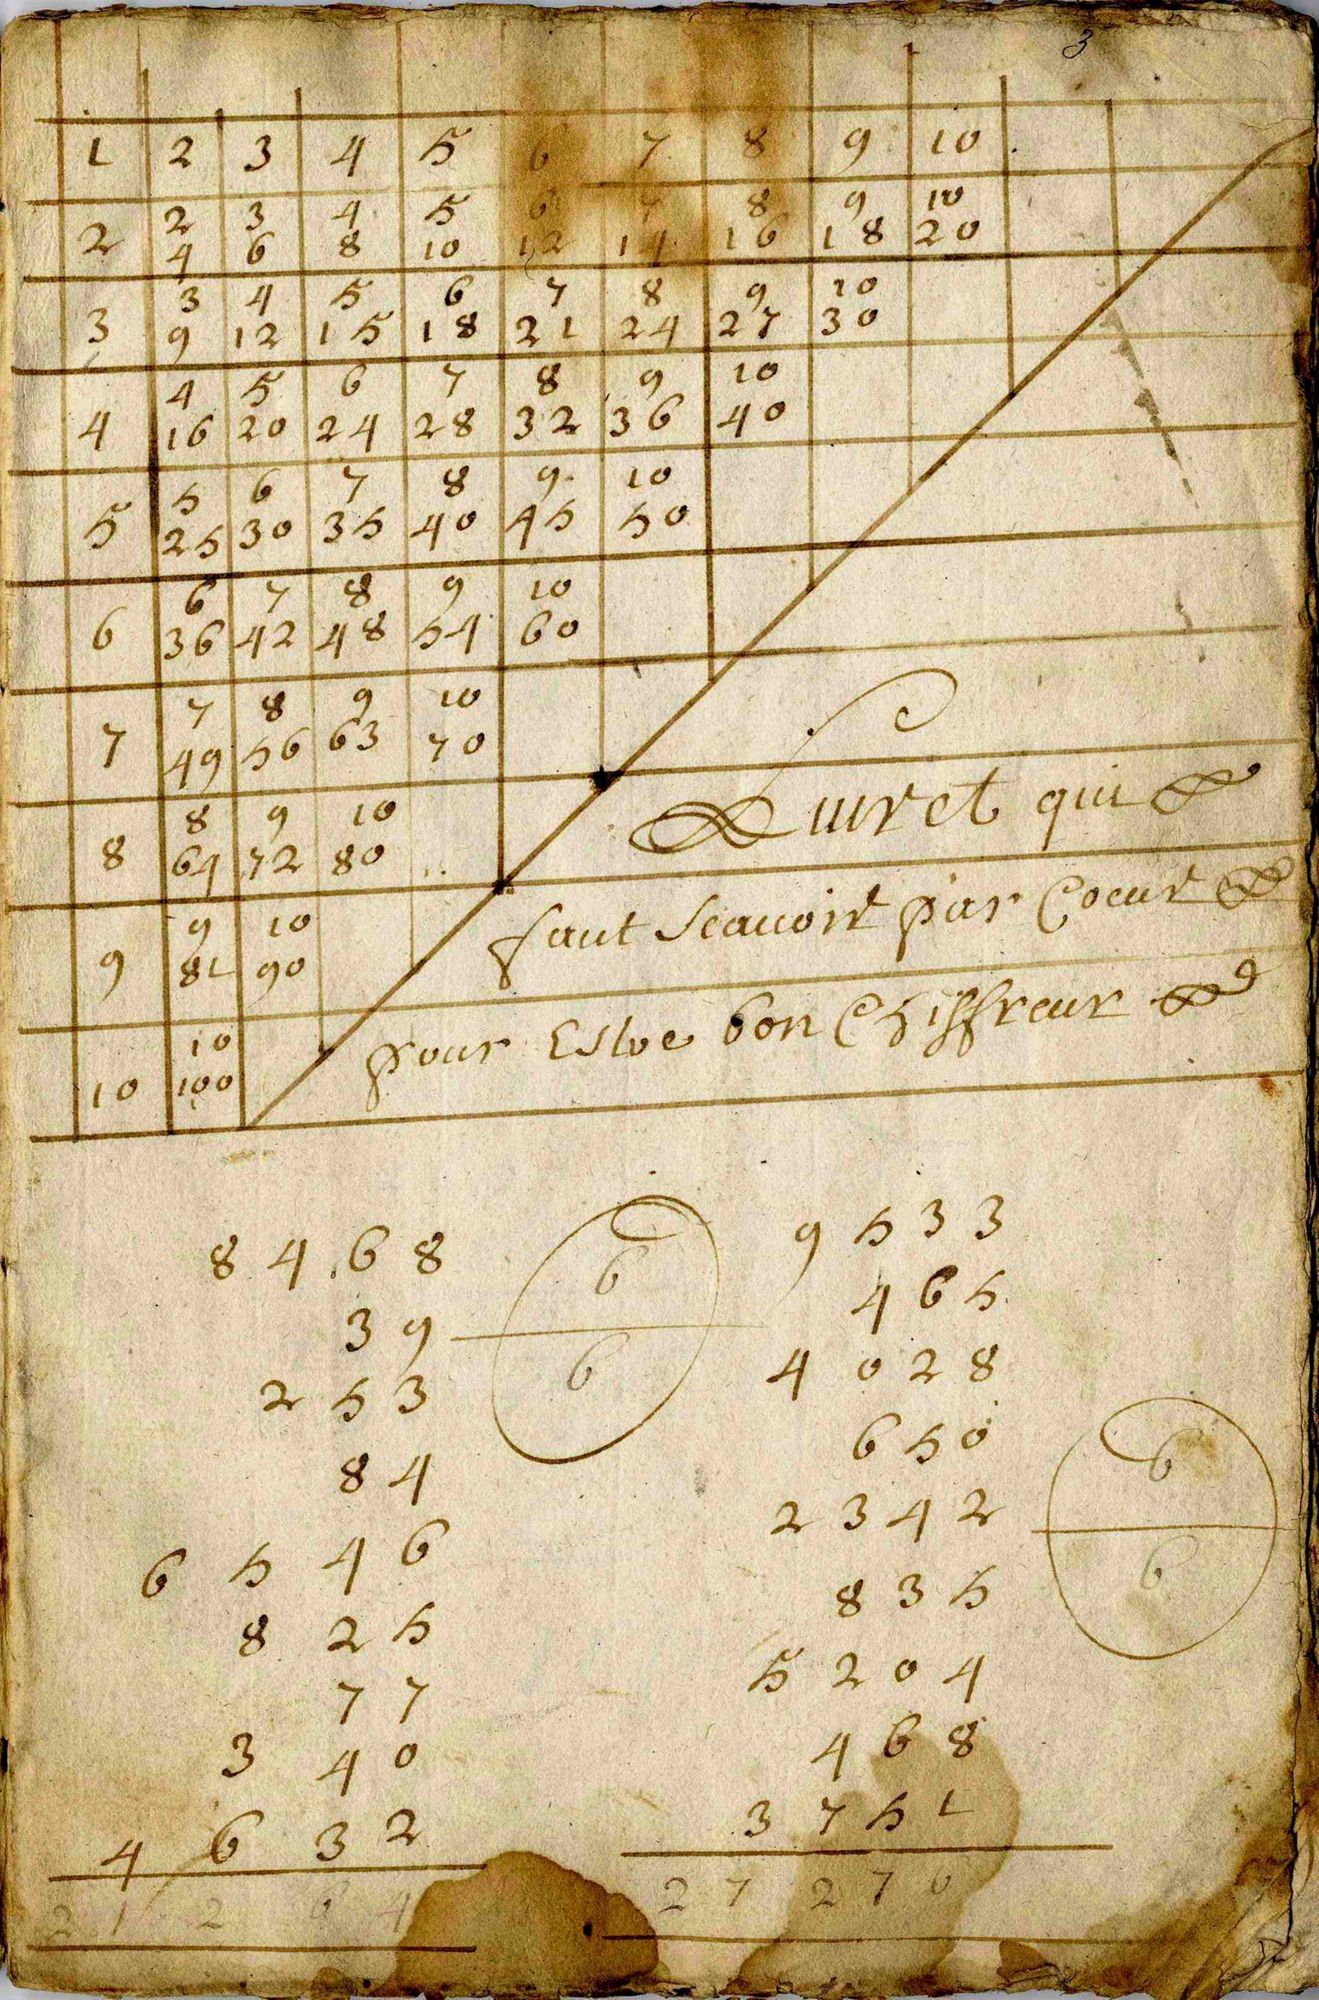 3
1 2 3 4 5 6 7 8 9 10
2 3 4 5 6 7 8 9 10
2 4 6 8 10 12 14 16 18 20
3 4 5 6 7 8 9 10
3 9 12 15 18 21 24 27 30
4 5 6 7 8 9 10
4 16 20 24 28 32 36 40
5 6 7 8 9 10
5 25 30 35 40 45 50
6 7 8 9 10
6 36 42 48 54 60
7 8 9 10
7 49 56 63 70
8 9 10
8 64 72 80
9 10
9 81 90
10
10 100
Liuret qui
faut scauoir par Coeur
pour Estre bon Chiffreur
8468
39
253
84
6546
825
77
340
4632
21264
6
6
9533
465
4028
650
2342
835
5204
468
3751
27276
6
6